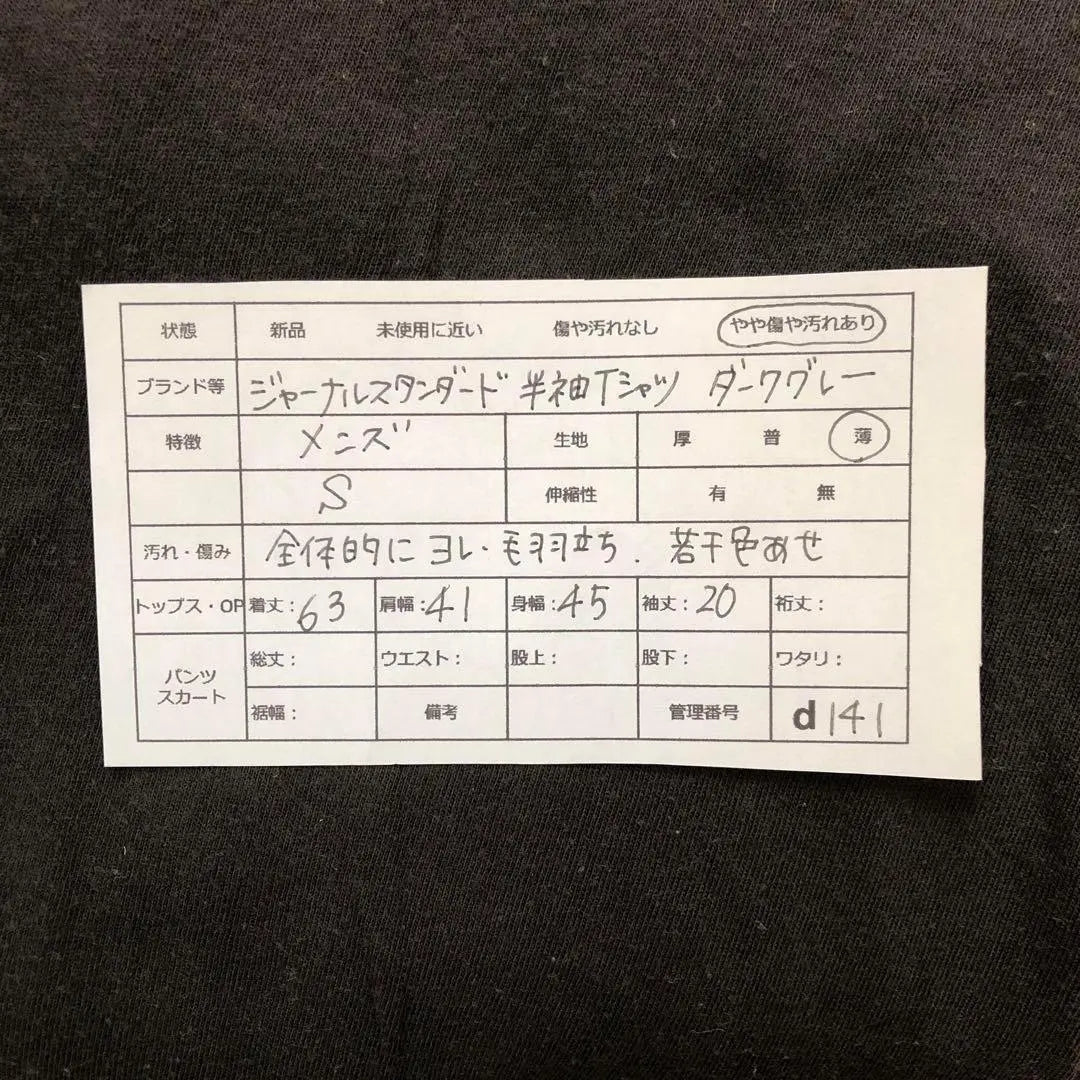 状態 新品 未使用に近い 傷や汚れなし やや傷や汚れあり
ブランド等 ジャーナルスタンダード 半袖Tシャツ ダークグレー
特徴 メンズ 生地 厚 普 薄
S 伸縮性 有 無
汚れ・傷み 全体的にヨレ・毛羽立ち. 若干色あせ
トップス・OP 着丈:63 肩幅:41 身幅:45 袖丈:20 裄丈:
パンツ
スカート
総丈: ウエスト: 股上: 股下: ワタリ:
裾幅: 備考 管理番号 d141